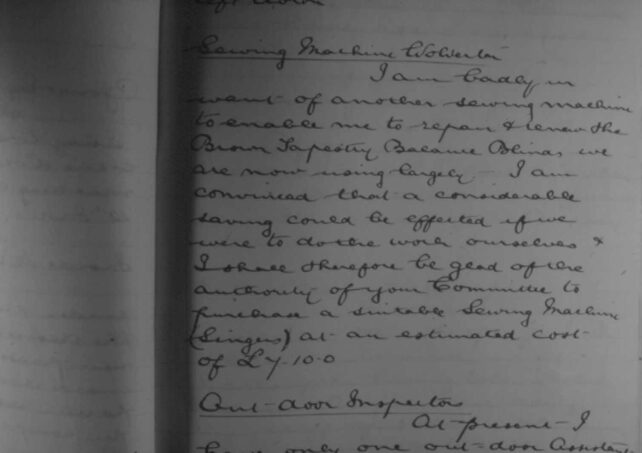 Sewing Machine Wolverton
I am badly in
want of another sewing machine
to enable me to repair & renew the
Brown Tapestry Balance Blinds we
are now using largely - I am
convinced that a considerable
saving could be effected if we
were to do the work ourselves &
I shall therefore be glad of the
authority of your Committee to
purchase a suitable Sewing Machine
(Singers) at an estimated cost
of £7-10-0
Out-door Inspectors
At present I
have only one out-door Assistant